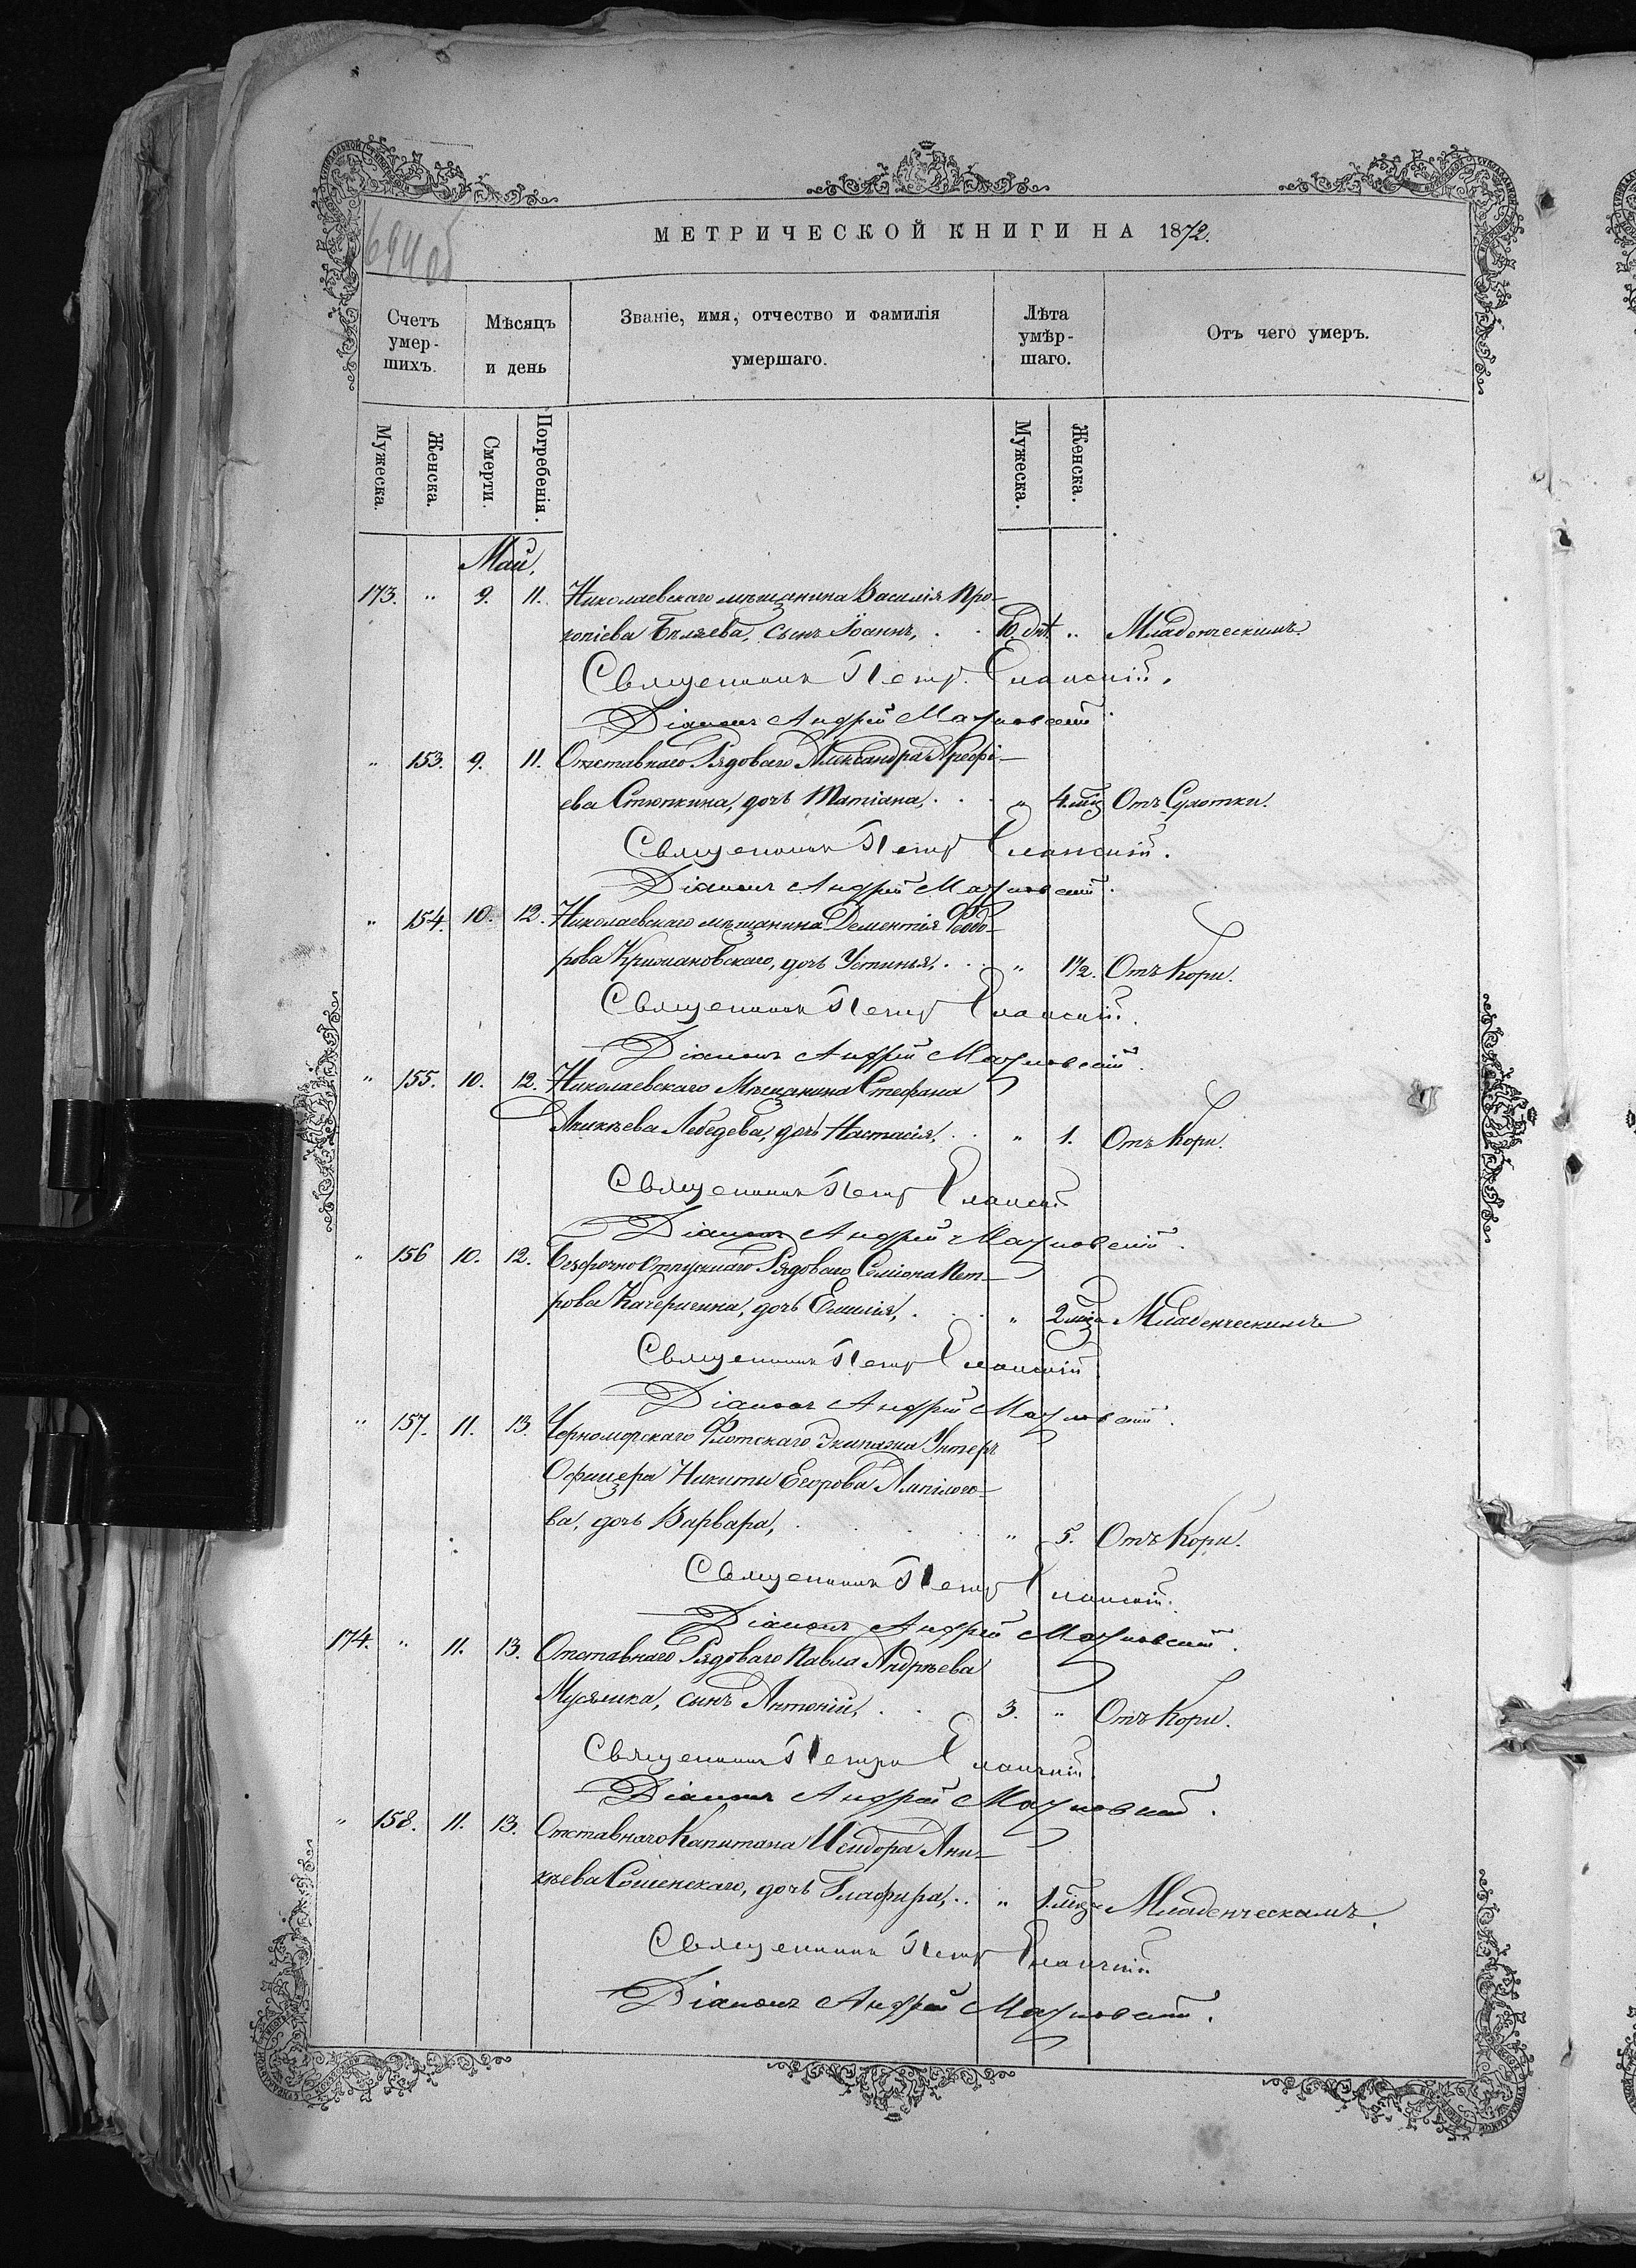 694 об
МЕТРИЧЕСКОЙ КНИГИ НА 1872.
Счетъ умер-шихъ.
Мѣсяцъ и день
Званіе, имя, отчество и фамилія умершаго.
Лѣта умѣр-шаго.
Отъ чего умеръ.
Мужеска. Женска. Смерти. Погребенія. Мужеска. Женска.
Май.
173. " 9. 11. Николаевскаго мѣщанина Василія Про-
копіева Бѣляева, сынъ Іоаннъ, 10. дн. " Младенческимъ.
Священникъ Петръ Еланскій.
Діаконъ Андрей
" 153. 9. 11. Отставнаго Рядоваго Александра Арефі-
ева Стюпкина, дочь Татіана, " 4. мѣс Отъ Сухотки.
Священникъ Петръ Еланскій.
Діаконъ Андрей
" 154. 10. 12. Николаевскаго мѣщанина Дементія Ѳеодо-
рова Крижановскаго, дочь Устинья, " 1½. Отъ Кори.
Священникъ Петръ Еланскій.
Діаконъ Андрей
" 155. 10. 12. Николаевскаго Мѣщанина Стефана
Аникѣева Лебедева, дочь Настасія, " 1. Отъ Кори.
Священникъ Петръ Еланскій
Діаконъ Андрей
" 156 10. 12. Безсрочно Отпускнаго Рядоваго Семіона Пет-
рова Качеригина, дочь Емилія, " 2 мѣсяца Младенческимъ
Священникъ Петръ Еланскій
Діаконъ Андрей
" 157. 11. 13. Черноморскаго Флотскаго Экипажа Унтеръ
Офицера Никиты Егорова Алпілого-
ва, дочь Варвара, " 5. Отъ Кори.
Священникъ Петръ Еланскій.
Діаконъ Андрей
174. " 11. 13. Отставнаго Рядоваго Павла Андрѣева
Мусѣлика, сынъ Антоній, 3. " Отъ Кори.
Священникъ Петръ Еланскій
Діаконъ Андрей
" 158. 11. 13. Отставнаго Капитана Исидора Ани-
кѣева Сошенскаго, дочь Глафира, " 1. мѣсяца Младенческимъ.
Священникъ Петръ Еланскій
Діаконъ Андрей